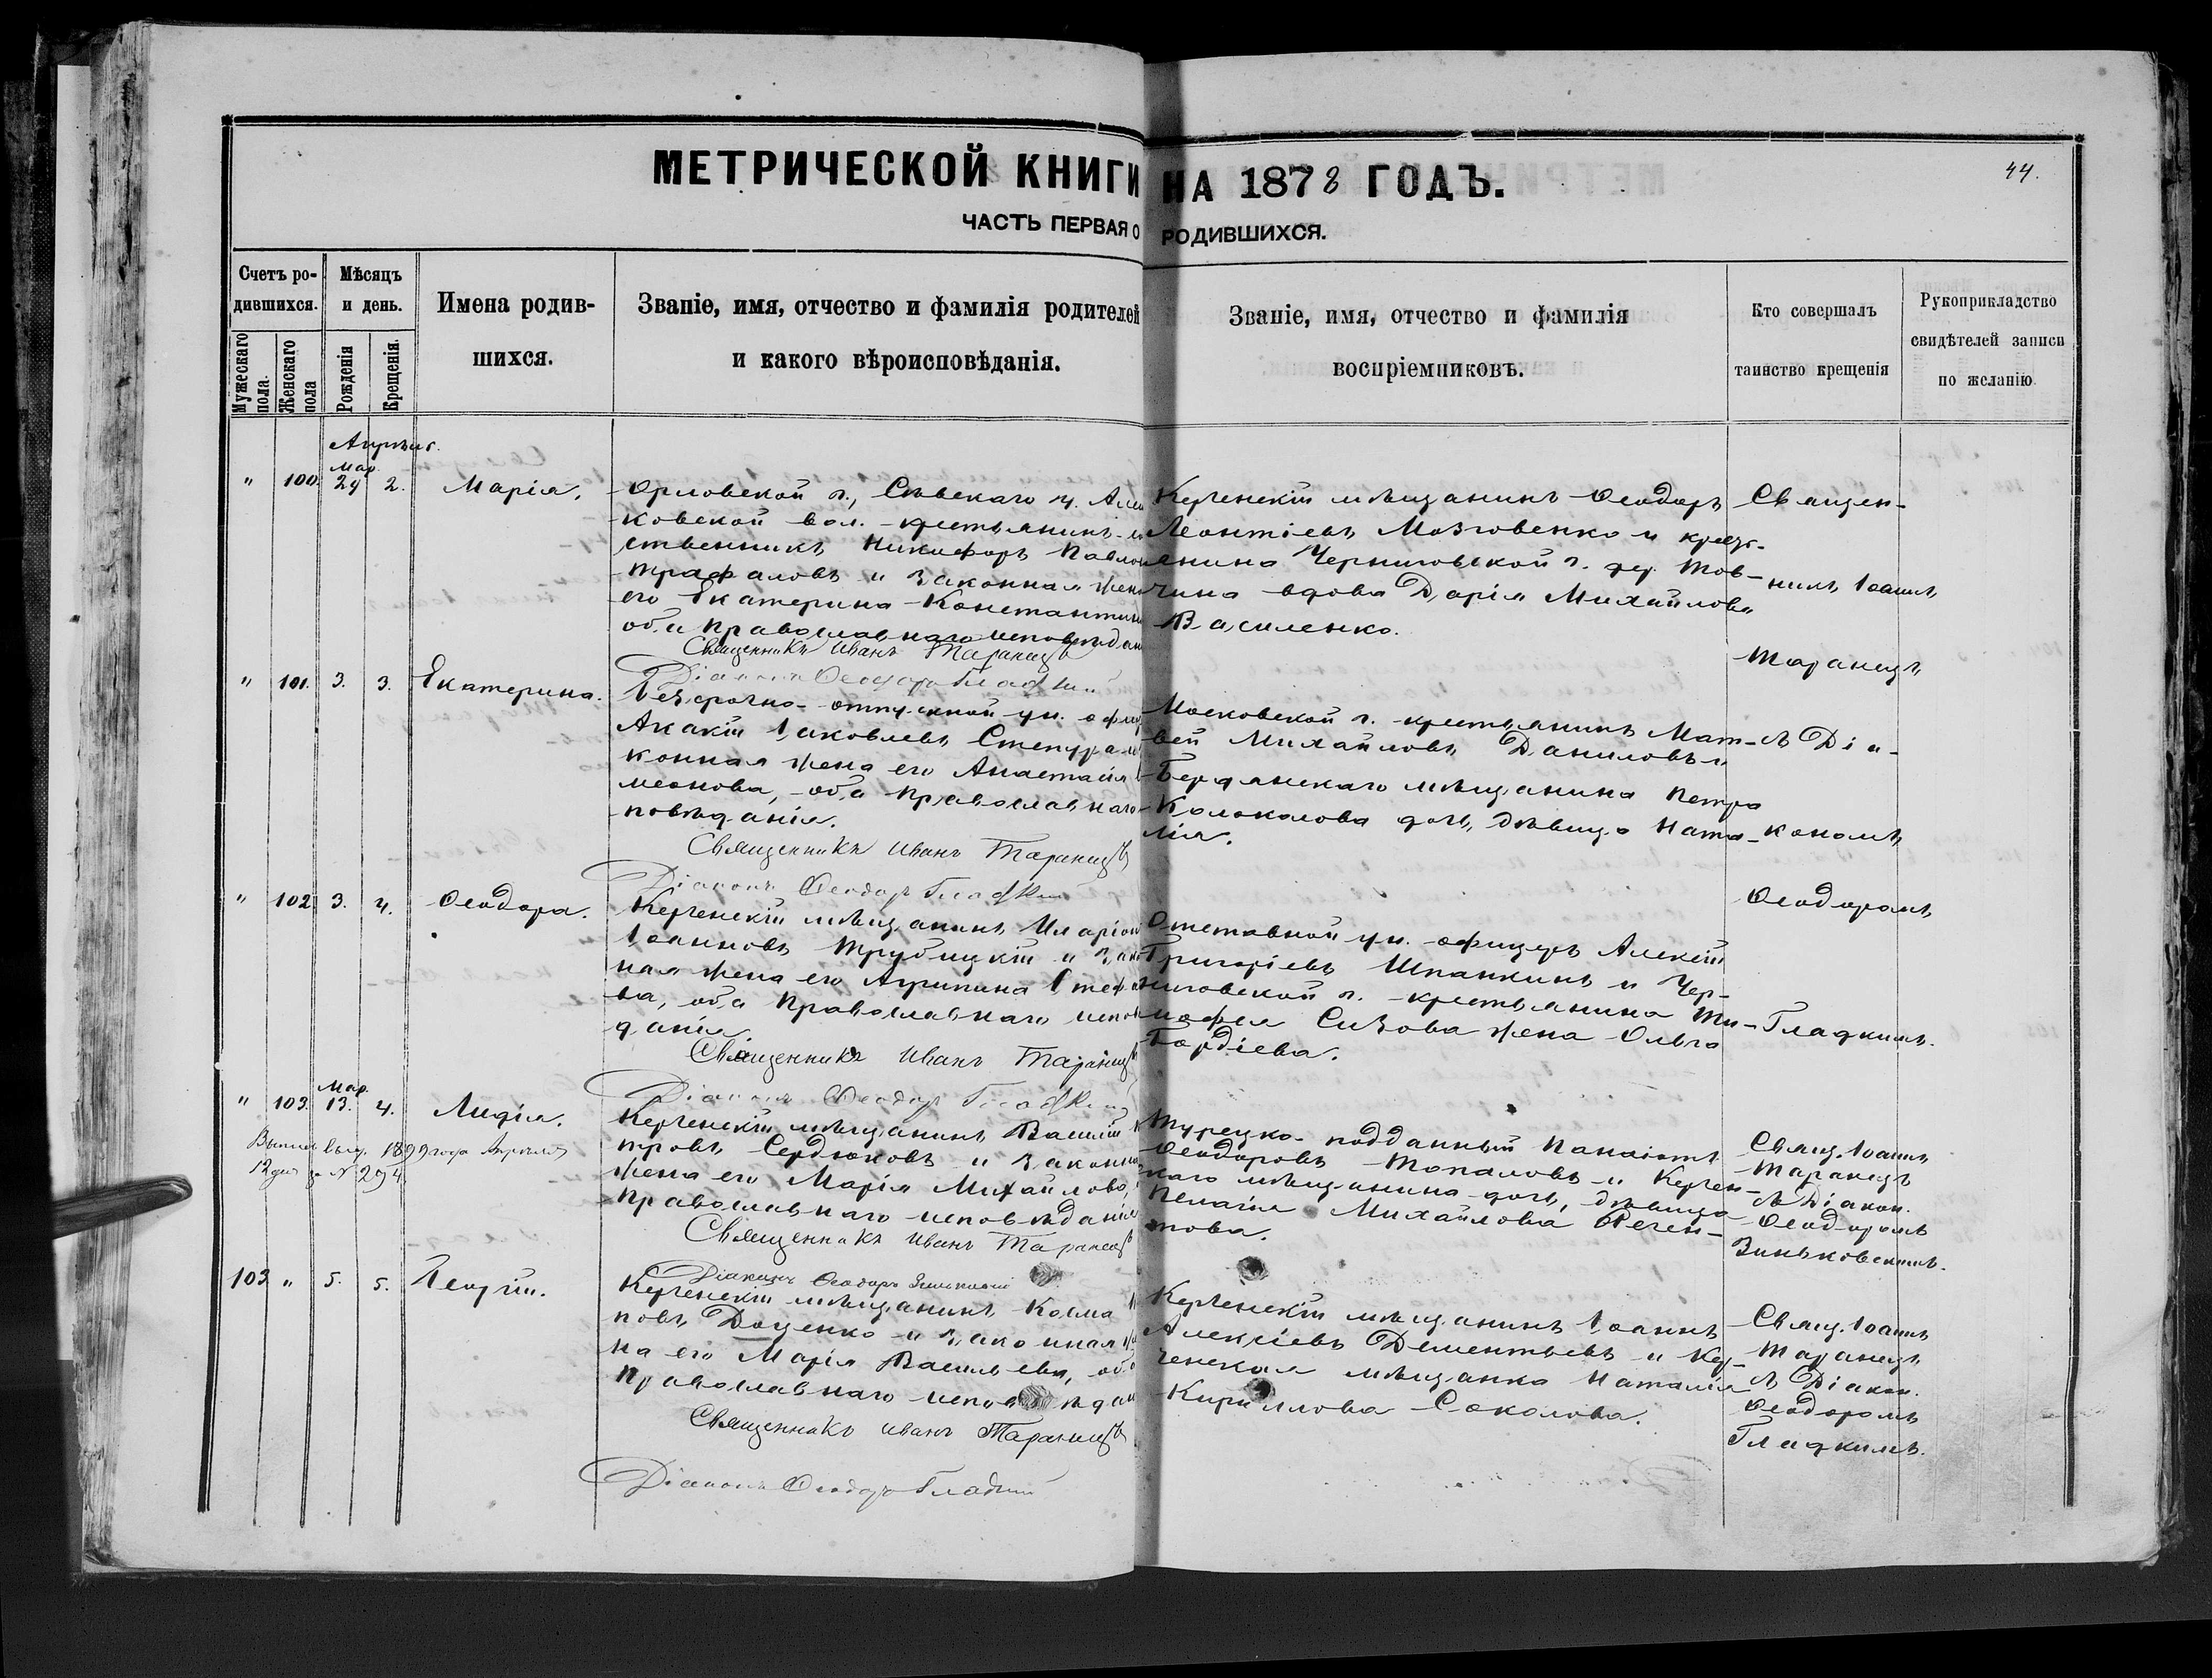 МЕТРИЧЕСКОЙ КНИГИ НА 1878 ГОДЪ.
44.
ЧАСТЬ ПЕРВАЯ О РОДИВШИХСЯ.
Счетъ ро-
дившихся.
Мужескаго пола.
Женскаго пола
Мѣсяцъ
и день.
Рожденія
Крещенія.
Имена родив-
шихся.
Званіе, имя, отчество и фамилія родителей
и какого вѣроисповѣданія.
Званіе, имя, отчество и фамилія
воспріемниковъ.
Кто совершалъ
таинство крещенія
Рукоприкладство
свидѣтелей записи
по желанію
Апрѣль.
Мар.
" 100. 29 2. Марія.
Орловской г., Сѣвскаго у.
ковской вол. крестьянинъ
ственникъ Никифоръ Павлов
Трафаловъ и законная жен
его Екатерина Константин
оба Православнаго исповѣдан
Священникъ Иванъ Таранецъ
Діаконъ Ѳеодоръ Гладкій
Керченскій мѣщанинъ Ѳеодоръ
Леонтіевъ Мозговенко и крест-
янина Черниговской г. дер. Тов-
чина вдова Дарія Михайлова
Василенко.
Священ-
никъ Іоаннъ
Таранецъ
" 101. 3. 3. Екатерина.
Безсрочно-отпускной ун. офиц
Акакій Іаковлевъ Степура
конная жена его Анастасія
меонова, оба Православнаго
повѣданія.
Священникъ Иванъ Таранецъ
Діаконъ Ѳеодоръ Гладкій
Московской г. крестьянинъ Мат-
вей Михайловъ Даниловъ и
Бердянскаго мѣщанина Петра
Колоколова дочь, дѣвица Ната-
лія.
съ Діа-
кономъ
Ѳеодоромъ
" 102. 3. 4. Ѳеодора.
Керченскій мѣщанинъ Иларіон
Іоанновъ Трубицкій и зако
ная жена его Агрипина Стеф
ва, оба Православнаго испов
данія.
Священникъ Иванъ Таранецъ
Діаконъ Ѳеодоръ Гладкій
Отставной ун. офицеръ Алексій
Григоріевъ Шпанкинъ и Чер-
ниговской г. крестьянина Ти-
мофея Сизова жена Ольга
Гордіева.
Гладкимъ.
Мар.
" 103. 13. 4. Лидія.
12 дня за № 294
Керченскій мѣщанинъ Василій
тровъ Сердюковъ и законна
жена его Марія Михайлова,
Православнаго исповѣданія
Священникъ Иванъ Таранецъ
Діаконъ Ѳеодоръ Зиньковскій
Турецко-подданный Панаіотъ
Ѳеодоровъ Топаловъ и Керчен-
скаго мѣщанина дочь, дѣвица
Пелагія Михайлова
това.
Свящ. Іоаннъ
Таранецъ
съ Діакон.
Ѳеодоромъ
Зиньковскимъ.
103 " 5. 5. Георгій.
Керченскій мѣщанинъ Косма
повъ Доценко и законная же
на его Марія Васильева, оба
Православнаго исповѣдан
Священникъ Иванъ Таранецъ
Діаконъ Ѳеодоръ Гладкій
Керченскій мѣщанинъ Іоаннъ
Алексіевъ Дементьевъ и Кер-
ченская мѣщанка Наталія
Кириллова Соколова.
Свящ. Іоаннъ
Таранецъ
съ Діакон.
Ѳеодоромъ
Гладкимъ.